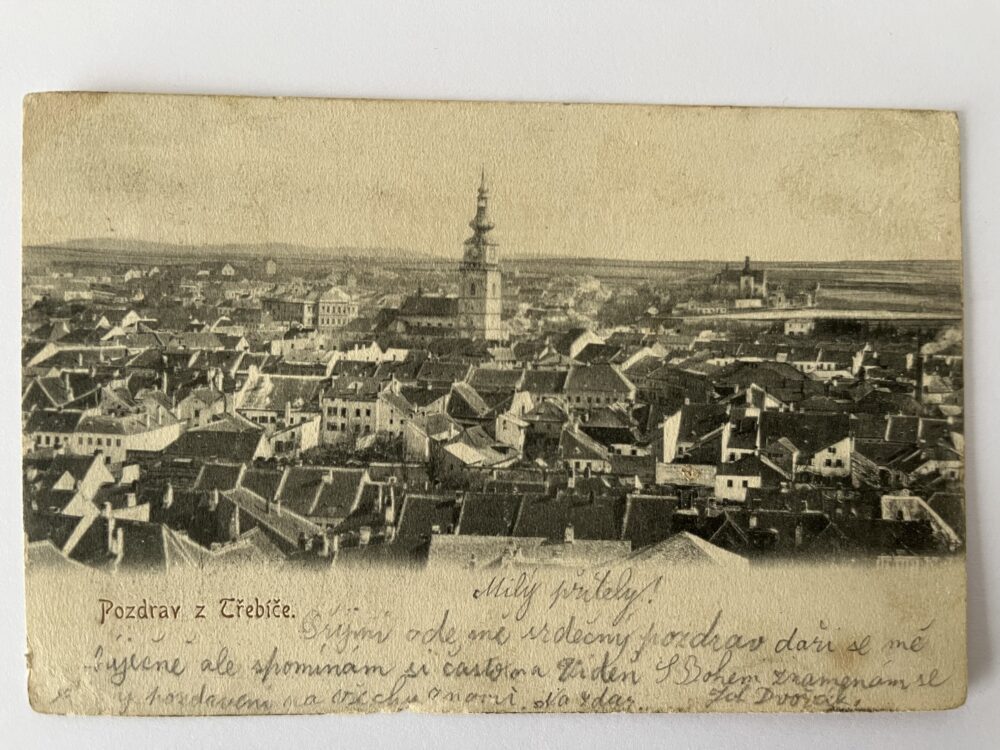 Pozdrav z Třebíče.
Milý přítely!
Přijmi ode mě srdečný pozdrav daří se mě
ale spomínám si často na Vídeň S Bohem znamenám se
pozdravení na všechy Na zdar.
Dvořák.